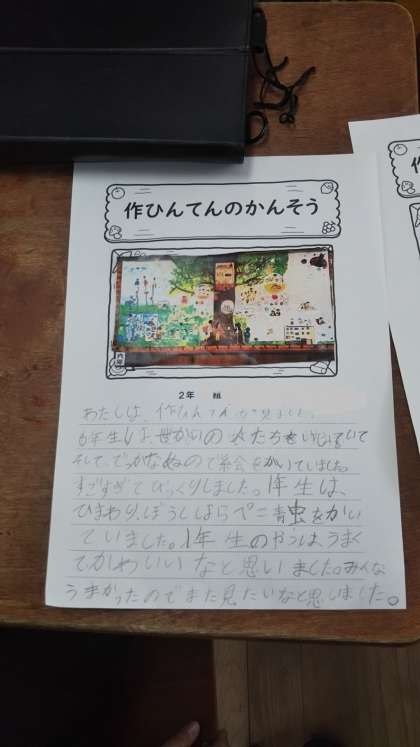 作ひんてんのかんそう
2年　組
わたしは、作ひんてんを見ました。
6年生は、せかいの人たちを
そして、でっかなぬので絵をかいていました。
すごすぎてびっくりしました。1年生は、
ひまわり、ぼうし、はらぺこ青虫をかい
ていました。1年生のやつは、うまく
てかわいいなと思いました。みんな
うまかったのでまた見たいなと思いました。